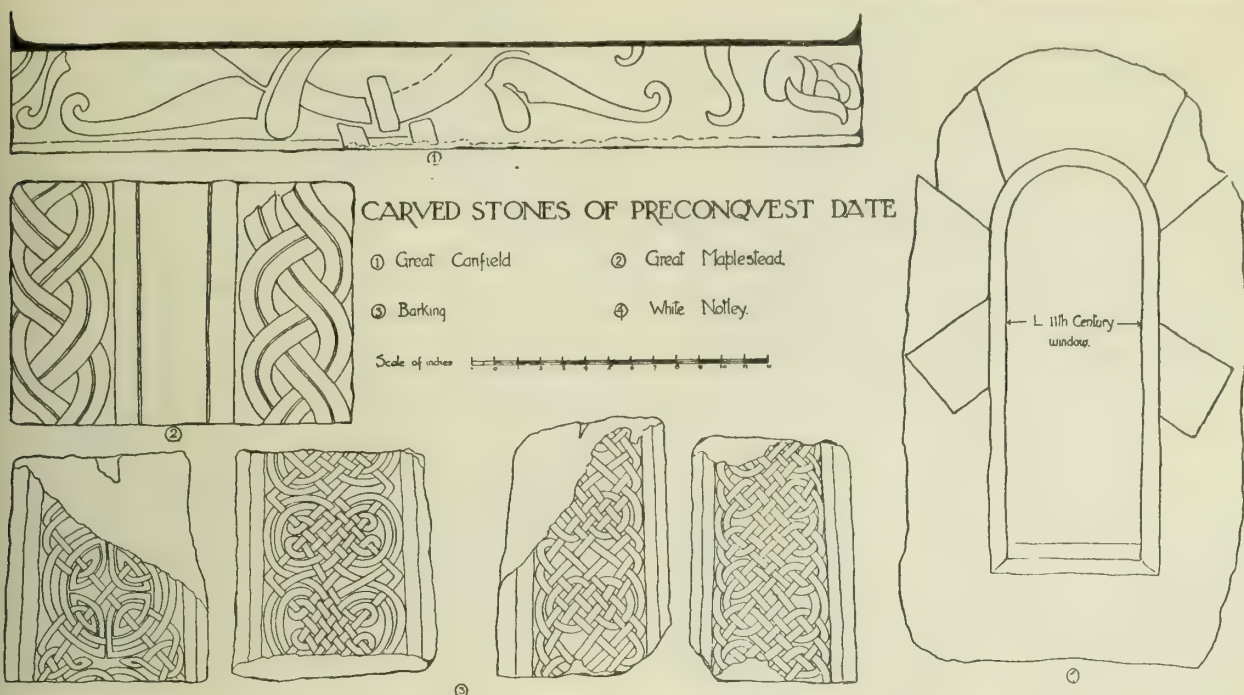 ①
CARVED STONES OF PRECONQVEST DATE
① Great Canfield
② Great Maplestead.
③ Barking
④ White Notley.
Scale of inches
②
L 11th Century
window.
③
④